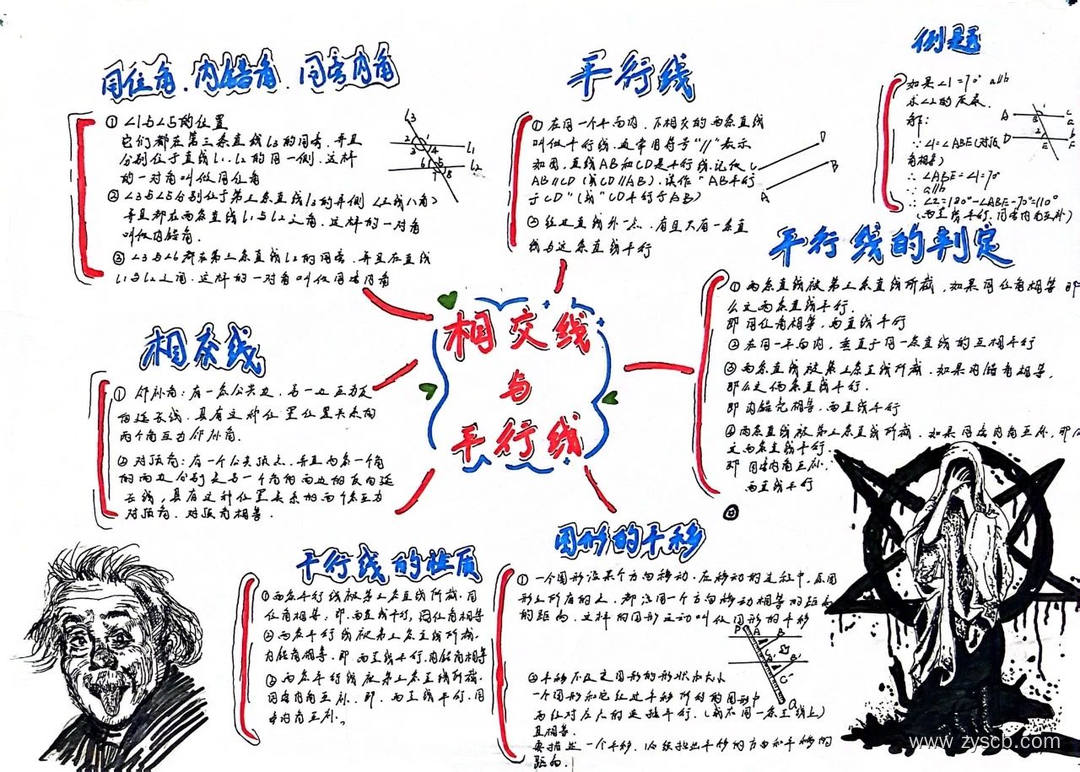 同位角、内错角、同旁内角
① ∠1与∠5的位置
它们都在第三条直线l3的同旁,并且
分别位于直线l1、l2的同一侧,这样
的一对角叫做同位角
② ∠3与∠5分别位于第三条直线l3的异侧
并且都在两条直线l1与l2之间,这样的一对角
叫做内错角.
③ ∠3与∠6都在第三条直线l3的同旁,并且在直线
l1与l2之间,这样的一对角叫做同旁内角
l3
2 1
3 4
l1
6 5
7 8
l2
平行线
① 在同一个平面内,不相交的两条直线
叫做平行线,通常用符号"//"表示
如图,直线AB和CD是平行线,记做
AB//CD(或CD//AB),读作"AB平行
于CD"(或"CD平行于AB)
② 经过直线外一点,有且只有一条直
线与这条直线平行
C D
A B
例题
如果∠1=70° a//b
求∠2的度数.
解:
∵∠1=∠ABE(对顶
角相等)
∴∠ABE=∠1=70°
∵ a//b
∴∠2=180°-∠ABE-70°=110°
(两直线平行,同旁内角互补)
平行线的判定
① 两条直线被第三条直线所截,如果同位角相等 那
么这两条直线平行.
即同位角相等,两直线平行
② 在同一平面内,垂直于同一条直线的互相平行
③ 两条直线被第三条直线所截,如果内错角相等,
那么这两条直线平行.
即内错角相等,两直线平行
④ 两条直线被第三条直线所截,如果同旁内角互补,那么
这两条直线平行.
即同旁内角互补,
两直线平行
相交线
与
平行线
相交线
① 邻补角:有一条公共边,另一边互为反
向延长线,具有这种位置关系的
两个角互为邻补角.
② 对顶角:有一个公共顶点,并且两条一个角
的两边分别是另一个角的两边的反向延
长线,具有这种位置关系的两个角互为
对顶角.对顶角相等.
平行线的性质
① 两条平行线被第三条直线所截,同
位角相等,即,两直线平行,同位角相等
② 两条平行线被第三条直线所截,
内错角相等,即两直线平行,内错角相等
③ 两条平行线被第三条直线所截,
同旁内角互补,即,两直线平行,同
旁内角互补。
图形的平移
① 一个图形沿某个方向移动,在移动的过程中,原图
形上所有的点,都沿同一个方向移动相等的距离
的距离,这样的图形运动叫做图形的平移
② 平移不改变图形的形状和大小
一个图形和它经过平移所得的图形中
两组对应点的连线平行,(或在同一条直线上)
且相等.
要描述一个平移,必须指出平移的方向和平移的
距离.
www.zyscb.com